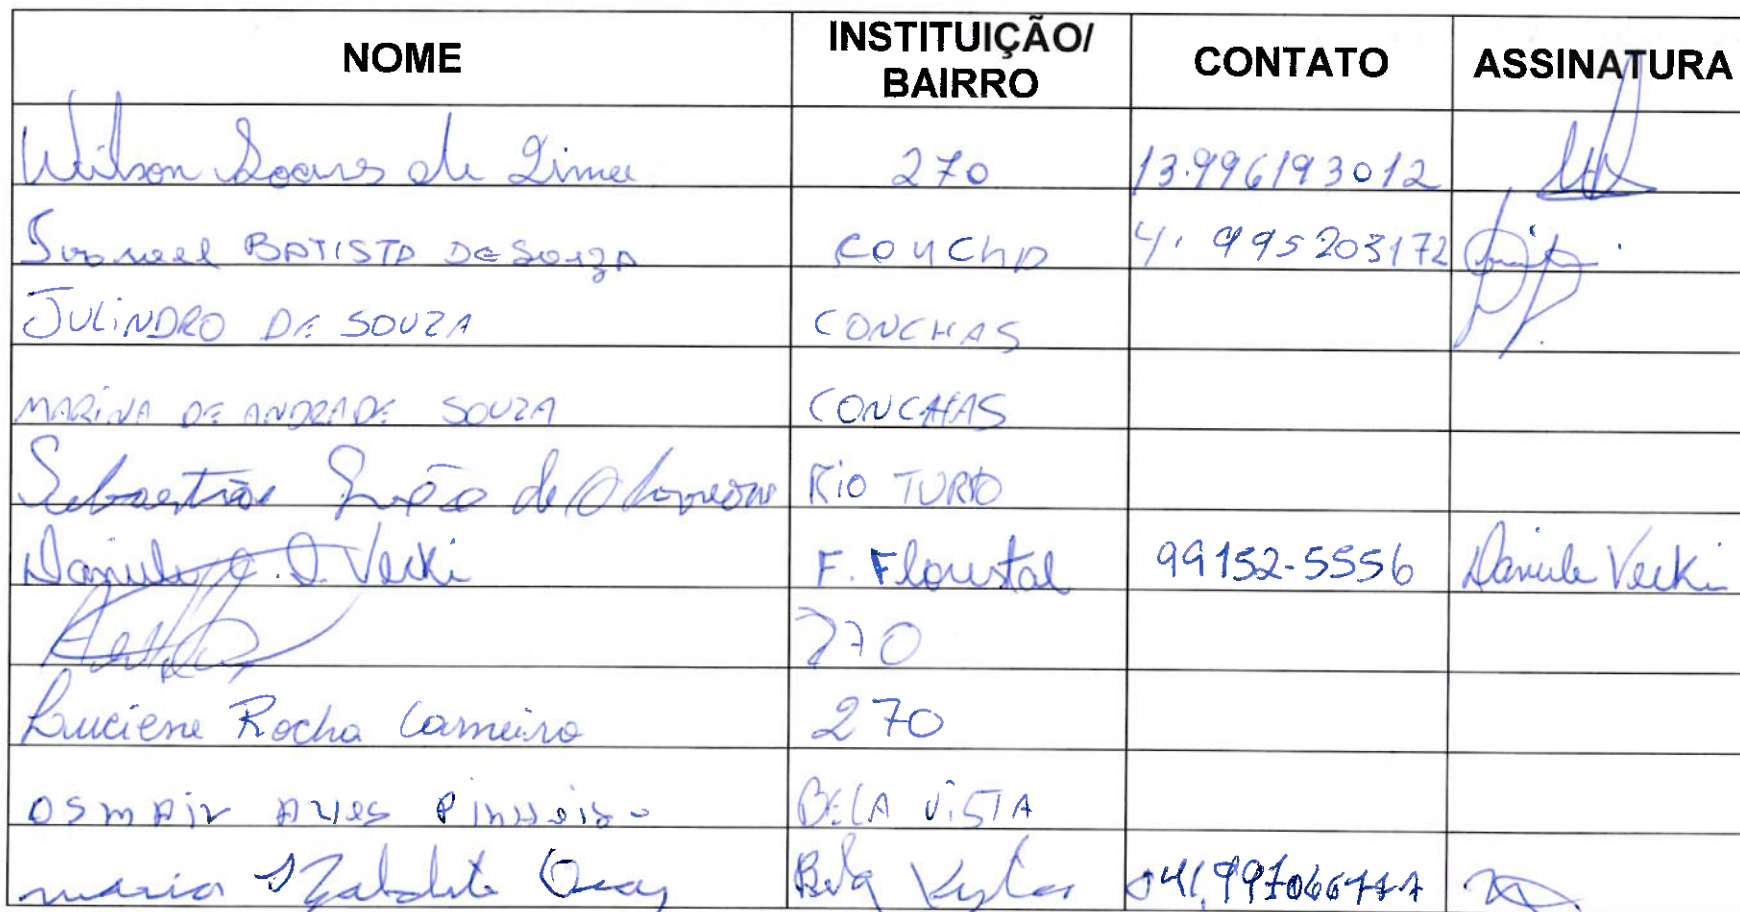 NOME INSTITUIÇÃO/ BAIRRO CONTATO ASSINATURA
Wilson Soares de Lima 270 13.996193012
BATISTA DE SOUZA CONCHA 41 995203172
JULINDRO DE SOUZA CONCHAS
MARINA DE ANDRADE SOUZA CONCHAS
Sebastião de RIO TURVO
Daniele Vecki F. Florestal 99152-5556 Daniele Vecki
270
Luciene Rocha Carneiro 270
OSMAIR ALVES PINHEIRO BELA VISTA
maria Izabel Bela Vista